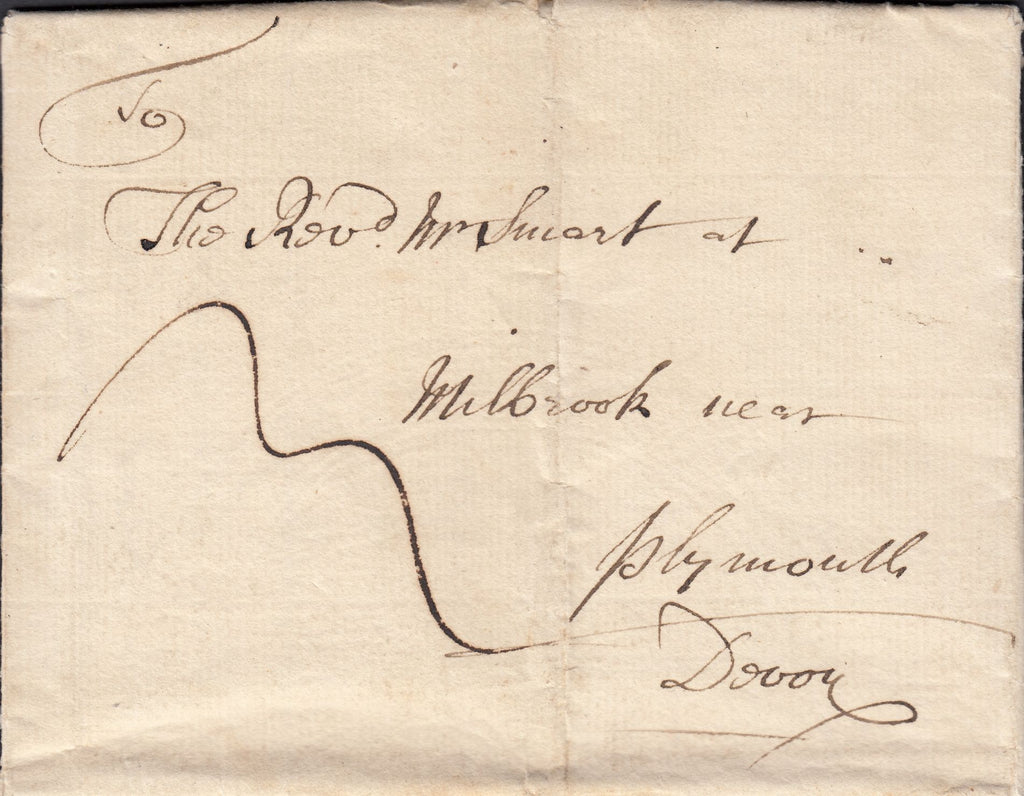 To
The Revd. Mr Smart at
Milbrook near
Plymouth
Devon